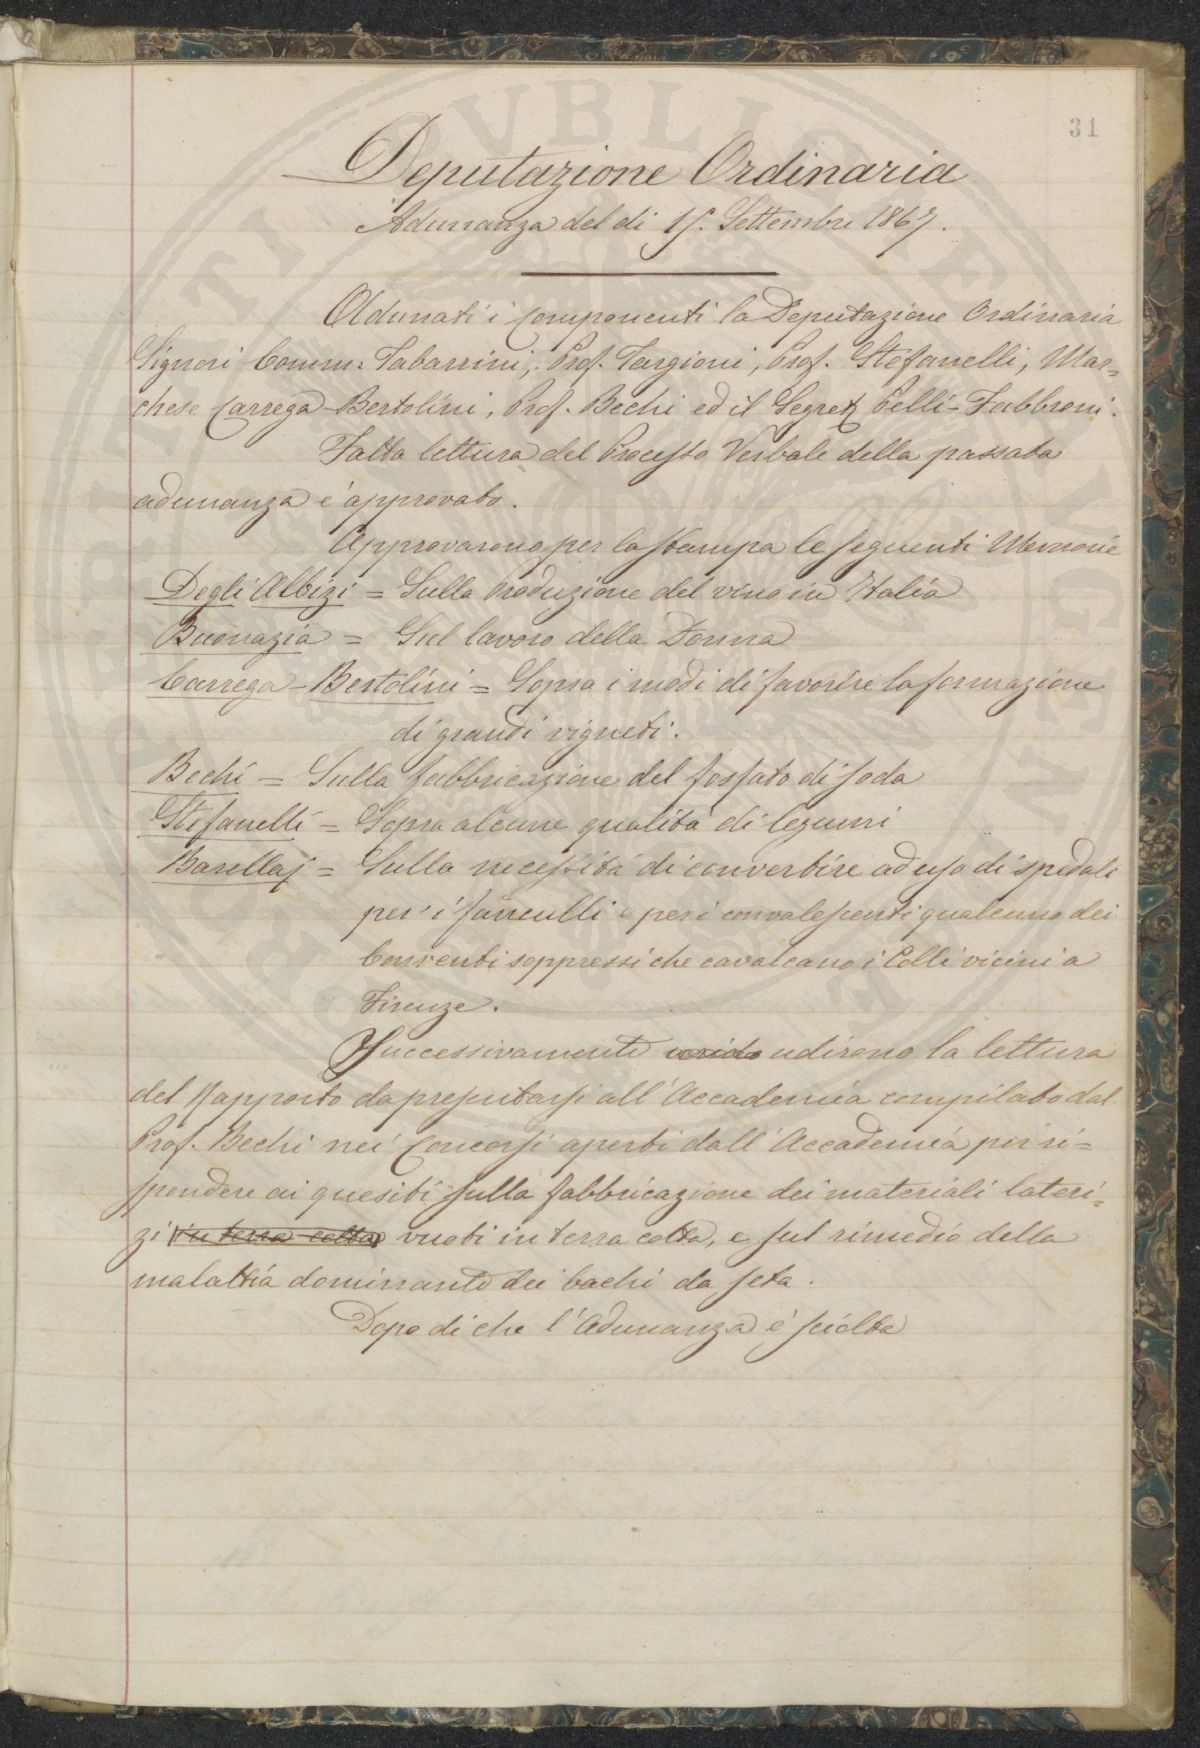 31
Deputazione Ordinaria
Adunanza del di 15. Settembre 1867.
Adunati i componenti la Deputazione Ordinaria
Signori Comm: Tabarrini, Prof. Targioni, Prof. Stefanelli, Mar=
chese Carrega-Bertolini, Prof. Bechi ed il Segret Pelli-Fabbroni.
Fatta lettura del Processo Verbale della passata
adunanza è approvato.
Approvarono per la stampa le seguenti Memorie
Degli Albizi = Sulla produzione del vino in Italia
Buonazia = Sul lavoro della Donna
Carrega-Bertolini = Sopra i modi di favorire la formazione
di grandi vigneti.
Bechi = Sulla fabbricazione del fosfato di soda
Stefanelli = Sopra alcune qualità di legumi
Barellaj = Sulla necessità di convertire ad uso di spedali
per i fanciulli e per i convalescenti qualcuno dei
Conventi soppressi che cavalcano i Colli vicini a
Firenze.
Successivamente udirono la lettura
del Rapporto da presentarsi all'Accademia compilato dal
Prof. Bechi nei Concorsi aperti dall'Accademia per ri=
spondere ai quesiti sulla fabbricazione dei materiali lateri=
zi in terra cotta vuoti in terra cotta, e sul rimedio della
malattia dominante dei bachi da seta.
Dopo di che l'Adunanza è sciolta